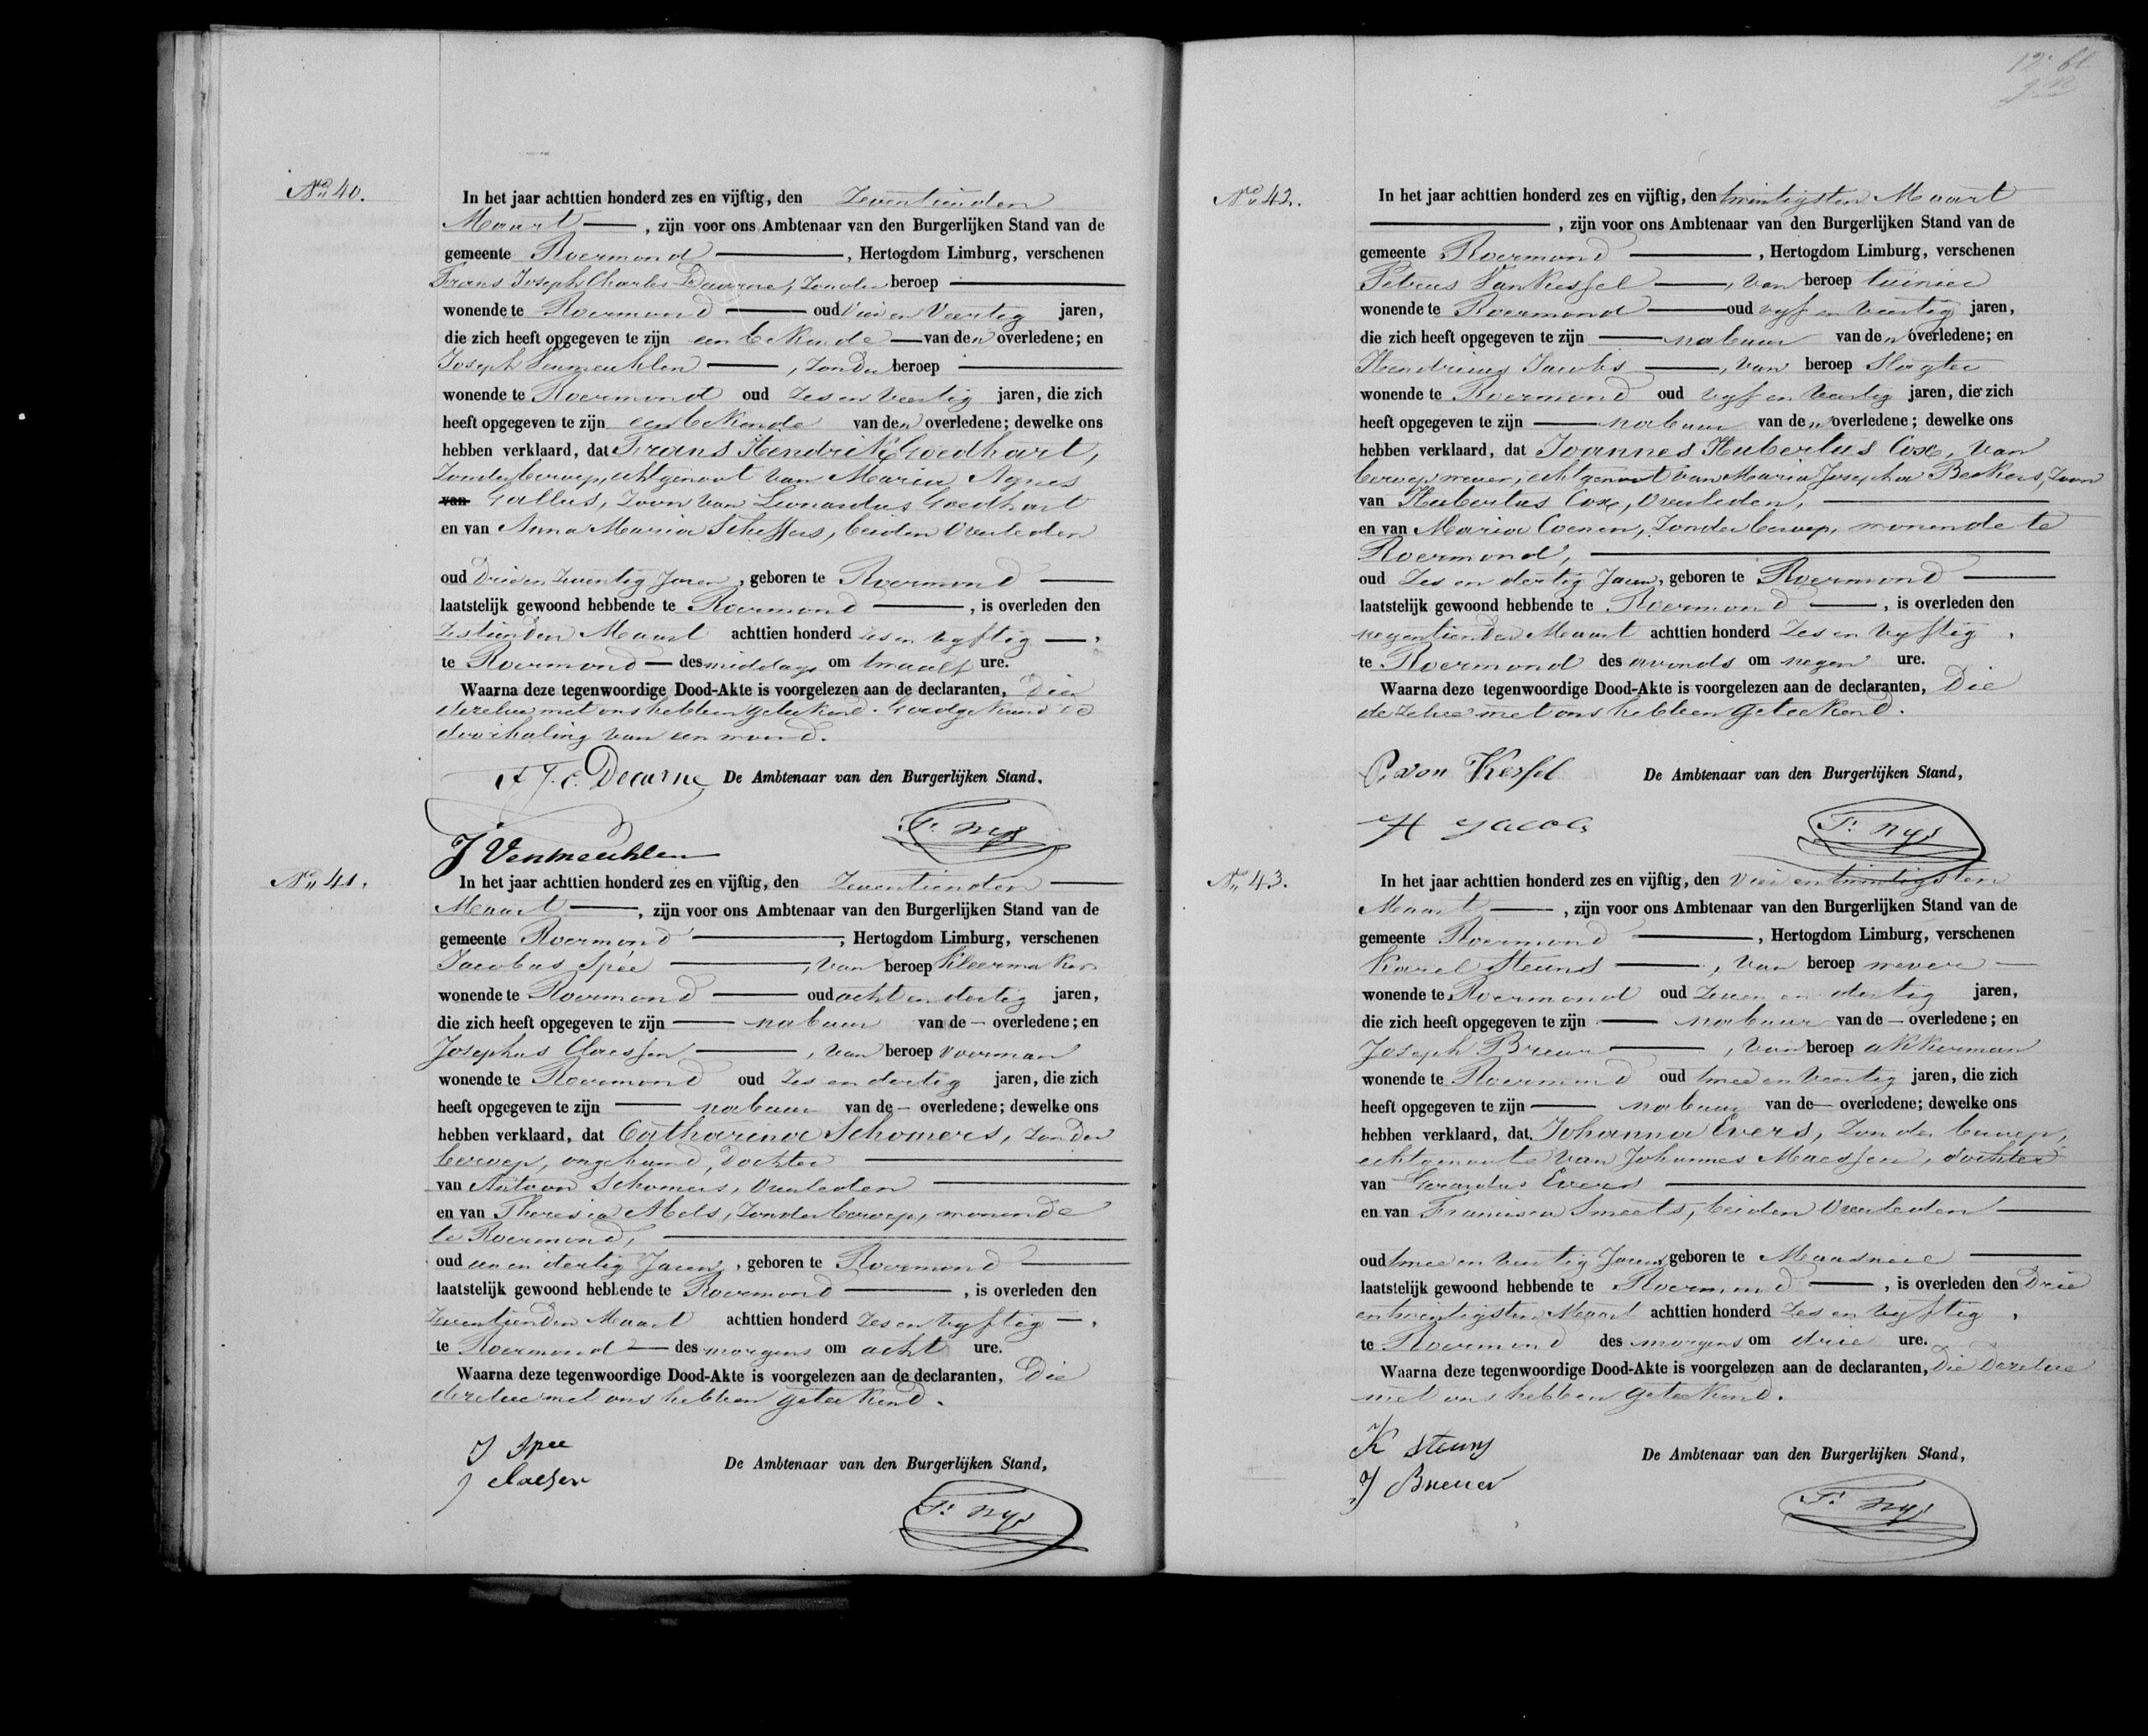 No 40.
In het jaar achttien honderd zes en vijftig, den Zeventienden
Maart —, zijn voor ons Ambtenaar van den Burgerlijken Stand van de
gemeente Roermond —, Hertogdom Limburg, verschenen
Frans Joseph Charles Decurne, Zonder beroep —
wonende te Roermond — oud Vier en Veertig jaren,
die zich heeft opgegeven te zijn een bekende — van den overledene; en
Joseph Venmeuhlen —, Zonder beroep —
wonende te Roermond oud Zes en Veertig jaren, die zich
heeft opgegeven te zijn een bekende van den overledene; dewelke ons
hebben verklaard, dat Frans Hendrik Goedhart,
Zonder beroep, echtgenoot van Maria Agnes
van Gallus, Zoon van Leonardus Goedhart
en van Anna Maria Scheffers, beiden Overleden
oud Drie en Zeventig Jaren, geboren te Roermond —
laatstelijk gewoond hebbende te Roermond —, is overleden den
Zestienden Maart achttien honderd zes en vyftig —,
te Roermond — des middags om twaalf ure.
Waarna deze tegenwoordige Dood-Akte is voorgelezen aan de declaranten, Die
dezelve met ons hebben geteekend. Goedgekeurd de
doorhaling van een woord.
F. J. C. Decurne De Ambtenaar van den Burgerlijken Stand.
F. Nys
J Venmeuhlen
No 41.
In het jaar achttien honderd zes en vijftig, den Zeventienden —
Maart —, zijn voor ons Ambtenaar van den Burgerlijken Stand van de
gemeente Roermond —, Hertogdom Limburg, verschenen
Jacobus Spée —, van beroep Kleermaker
wonende te Roermond — oud acht en dertig jaren,
die zich heeft opgegeven te zijn — nabuur van de — overledene; en
Josephus Claessen —, van beroep voerman
wonende te Roermond oud Zes en dertig jaren, die zich
heeft opgegeven te zijn — nabuur van de — overledene; dewelke ons
hebben verklaard, dat Catharina Schomers, zonder
beroep, ongehuwd, Dochter —
van Antoon Schomers, Overleden —
en van Theresia Abels, Zonder beroep, wonende
te Roermond, —
oud een en dertig Jaren, geboren te Roermond —
laatstelijk gewoond hebbende te Roermond —, is overleden den
Zeventienden Maart achttien honderd Zes en vyftig —,
te Roermond — des morgens om acht ure.
Waarna deze tegenwoordige Dood-Akte is voorgelezen aan de declaranten, Die
dezelve met ons hebben geteekend.
J Spee
J Claesen
De Ambtenaar van den Burgerlijken Stand,
F. Nys
12e bl
No 42.
In het jaar achttien honderd zes en vijftig, den twintigsten Maart
—, zijn voor ons Ambtenaar van den Burgerlijken Stand van de
gemeente Roermond —, Hertogdom Limburg, verschenen
Petrus Van Kessel —, van beroep tuinier
wonende te Roermond — oud vyf en veertig jaren,
die zich heeft opgegeven te zijn — nabuur van den overledene; en
Hendricus Jacobs —, van beroep Slagter
wonende te Roermond oud vyf en Veertig jaren, die zich
heeft opgegeven te zijn — nabuur van den overledene; dewelke ons
hebben verklaard, dat Joannes Hubertus Cox, van
beroep wever, echtgenoot van Maria Josepha Beckers, Zoon
van Hubertus Cox, Overleden, —
en van Maria Coenen, Zonder beroep, wonende te
Roermond, —
oud Zes en dertig Jaren, geboren te Roermond —
laatstelijk gewoond hebbende te Roermond —, is overleden den
negentienden Maart achttien honderd Zes en vyftig,
te Roermond des avonds om negen ure.
Waarna deze tegenwoordige Dood-Akte is voorgelezen aan de declaranten, Die
dezelve met ons hebben geteekend.
P. von Kessel De Ambtenaar van den Burgerlijken Stand,
H Jacobs
F. Nys
No 43.
In het jaar achttien honderd zes en vijftig, den vier en twintigsten
Maart —, zijn voor ons Ambtenaar van den Burgerlijken Stand van de
gemeente Roermond —, Hertogdom Limburg, verschenen
Karel Steuns —, van beroep wever —
wonende te Roermond oud Zeven en dertig jaren,
die zich heeft opgegeven te zijn — nabuur van de — overledene; en
Joseph Breuer —, van beroep akkerman
wonende te Roermond oud twee en Veertig jaren, die zich
heeft opgegeven te zijn — nabuur van de — overledene; dewelke ons
hebben verklaard, dat Johanna Evers, Zonder beroep,
echtgenoote van Johannes Maessen, dochter
van Gerardus Evers —
en van Francisca Smeets, beiden Overleden —
oud twee en veertig Jaren, geboren te Maasniel —
laatstelijk gewoond hebbende te Roermond —, is overleden den Drie
en twintigsten Maart achttien honderd Zes en vyftig,
te Roermond des morgens om drie ure.
Waarna deze tegenwoordige Dood-Akte is voorgelezen aan de declaranten, Die dezelve
met ons hebben geteekend.
K Steuns
J Breuer
De Ambtenaar van den Burgerlijken Stand,
F. Nys